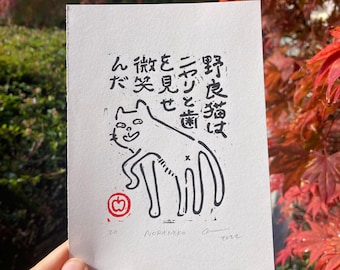 野良猫は
ニヤリと歯
を見せ
微笑
んだ
NORANEKO
2022